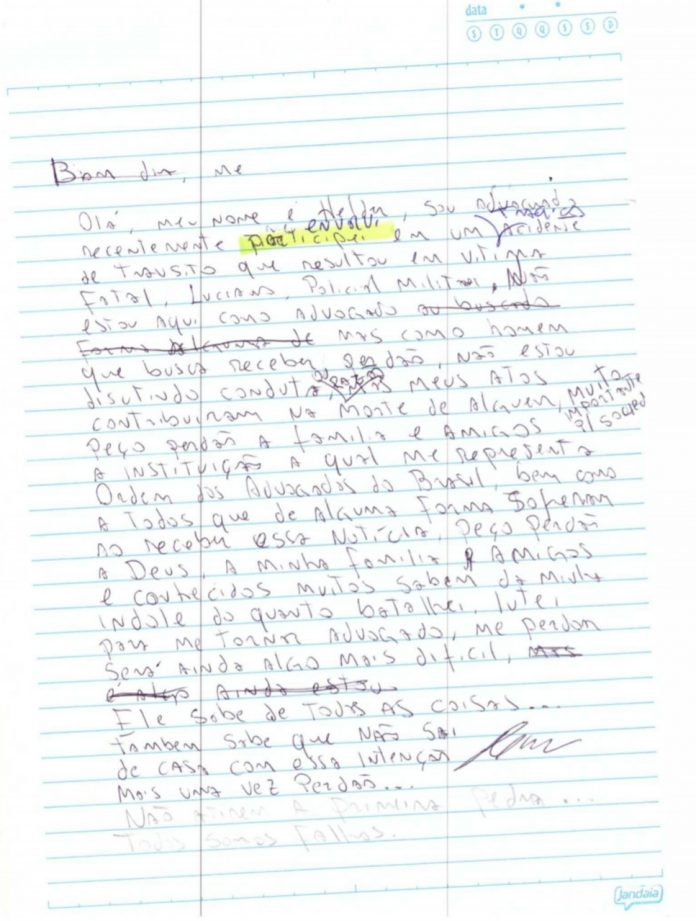 data
S T Q Q S S D
Bom dia, me
Olá, meu nome é Helder, sou advogado
recentemente participei envolvi em um trágico acidente
de transito que resultou em vitima
fatal, Luciano, Policial Militar, Não
estou aqui como advogado ou buscando
forma alguma de mas como homem
que busca receber perdão, não estou
discutindo conduta, mas meus atos
contribuiram na morte de alguem, muito importante p/ socied
Peço perdão a familia e amigos
a instituição a qual me representa
Ordem dos Advogados do Brasil, bem como
a todos que de alguma forma sofreram
ao receber essa notícia, peço perdão
a Deus, a minha familia e amigos
e conhecidos muitos sabem da minha
indole do quanto batalhei, lutei
para me tornar advogado, me perdoar
será ainda algo mais dificil, mas
é algo ainda estou
Ele sabe de todas as coisas...
tambem sabe que não sai
de casa com essa intenção
Mais uma vez perdão...
Não atirem a primeira pedra...
Todos somos falhos.
jandaia